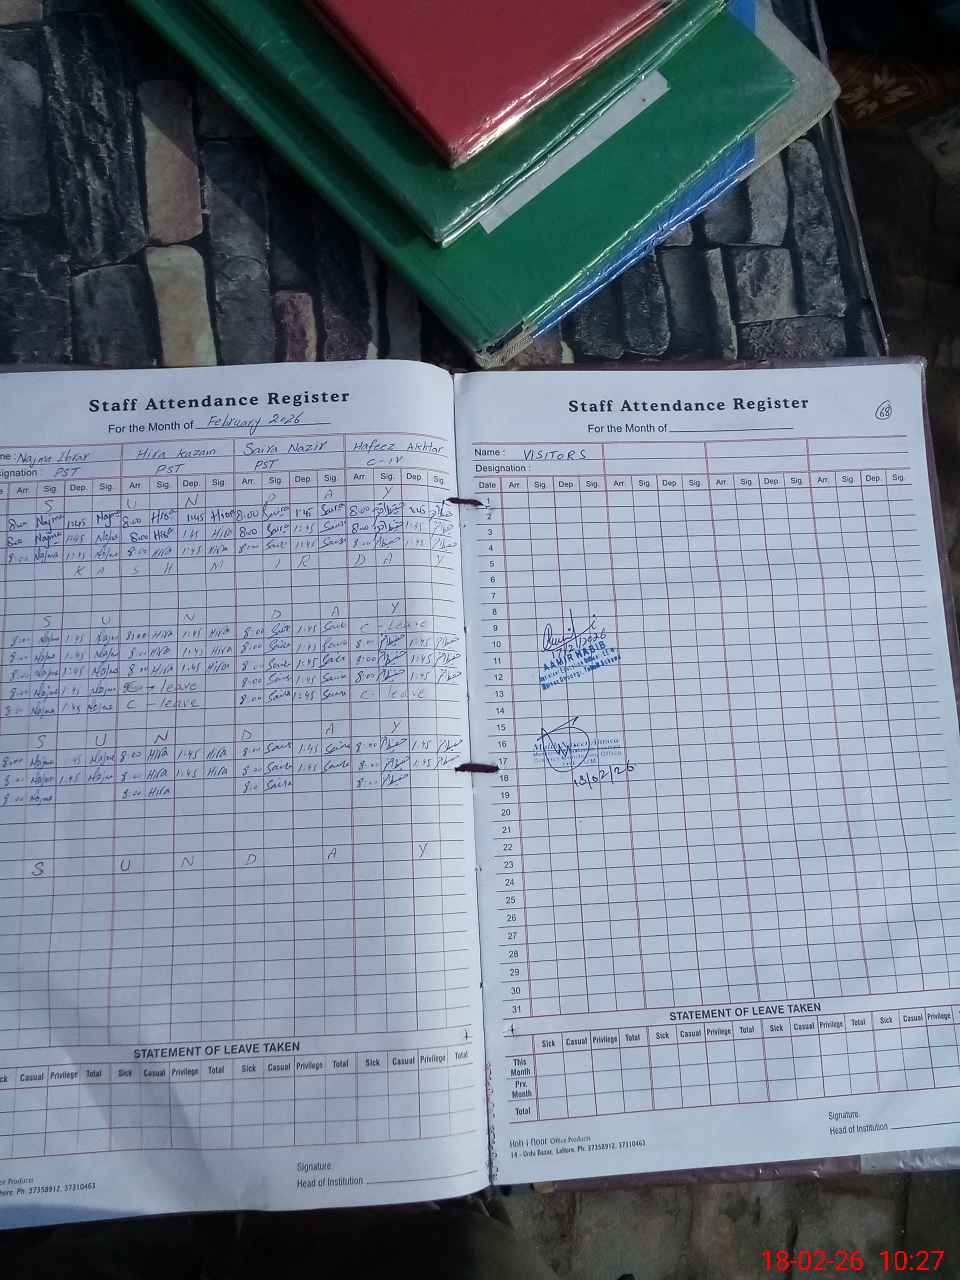 Staff Attendance Register
For the Month of February 2026
me : Najma Ibrar Hira Kazain Saira Nazir Hafeez Akhtar
signation : PST PST PST C-IV
Arr. Sig. Dep. Sig. Arr. Sig. Dep. Sig. Arr. Sig. Dep. Sig. Arr. Sig. Dep. Sig.
S U N D A Y
8:00 Najma 1:45 Najma 8:00 Hira 1:45 Hira 8:00 Saira 1:45 Saira 8:00 1:45
8:00 Najma 1:45 Najma 8:00 Hira 1:45 Hira 8:00 Saira 1:45 Saira 8:00 1:45
8:00 Najma 1:45 Najma 8:00 Hira 1:45 Hira 8:00 Saira 1:45 Saira 8:00 1:45
K A S H M I R D A Y
S U N D A Y
8:00 Najma 1:45 Najma 8:00 Hira 1:45 Hira 8:00 Saira 1:45 Saira C - Leave
8:00 Najma 1:45 Najma 8:00 Hira 1:45 Hira 8:00 Saira 1:45 Saira 8:00 1:45
8:00 Najma 1:45 Najma 8:00 Hira 1:45 Hira 8:00 Saira 1:45 Saira 8:00 1:45
8:00 Najma 1:45 Najma leave 8:00 Saira 1:45 Saira 8:00 1:45
8:00 Najma 1:45 Najma C - leave 8:00 Saira 1:45 Saira C - leave
S U N D A Y
8:00 Najma 1:45 Najma 8:00 Hira 1:45 Hira 8:00 Saira 1:45 Saira 8:00 1:45
8:00 Najma 1:45 Najma 8:00 Hira 1:45 Hira 8:00 Saira 1:45 Saira 8:00 1:45
8:00 Najma 8:00 Hira 8:00 Saira 8:00
S U N D A Y
STATEMENT OF LEAVE TAKEN
ck Casual Privilege Total Sick Casual Privilege Total Sick Casual Privilege Total Sick Casual Privilege Total
Signature
Head of Institution
ice Products
hore. Ph: 37358912, 37310463
Staff Attendance Register
68
For the Month of
Name : VISITORS
Designation :
Date Arr. Sig. Dep. Sig. Arr. Sig. Dep. Sig. Arr. Sig. Dep. Sig. Arr. Sig. Dep. Sig.
1
2
3
4
5
6
7
8
9
10
11
AAMIR HABIB
12
13
14
15
16
17
18 18/02/26
19
20
21
22
23
24
25
26
27
28
29
30
31
STATEMENT OF LEAVE TAKEN
Sick Casual Privilege Total Sick Casual Privilege Total Sick Casual Privilege Total Sick Casual Privilege
This Month
Prv. Month
Total
Signature
Head of Institution
Koh-i-Noor Office Products
14 - Urdu Bazar, Lahore. Ph: 37358912, 37310463
18-02-26 10:27